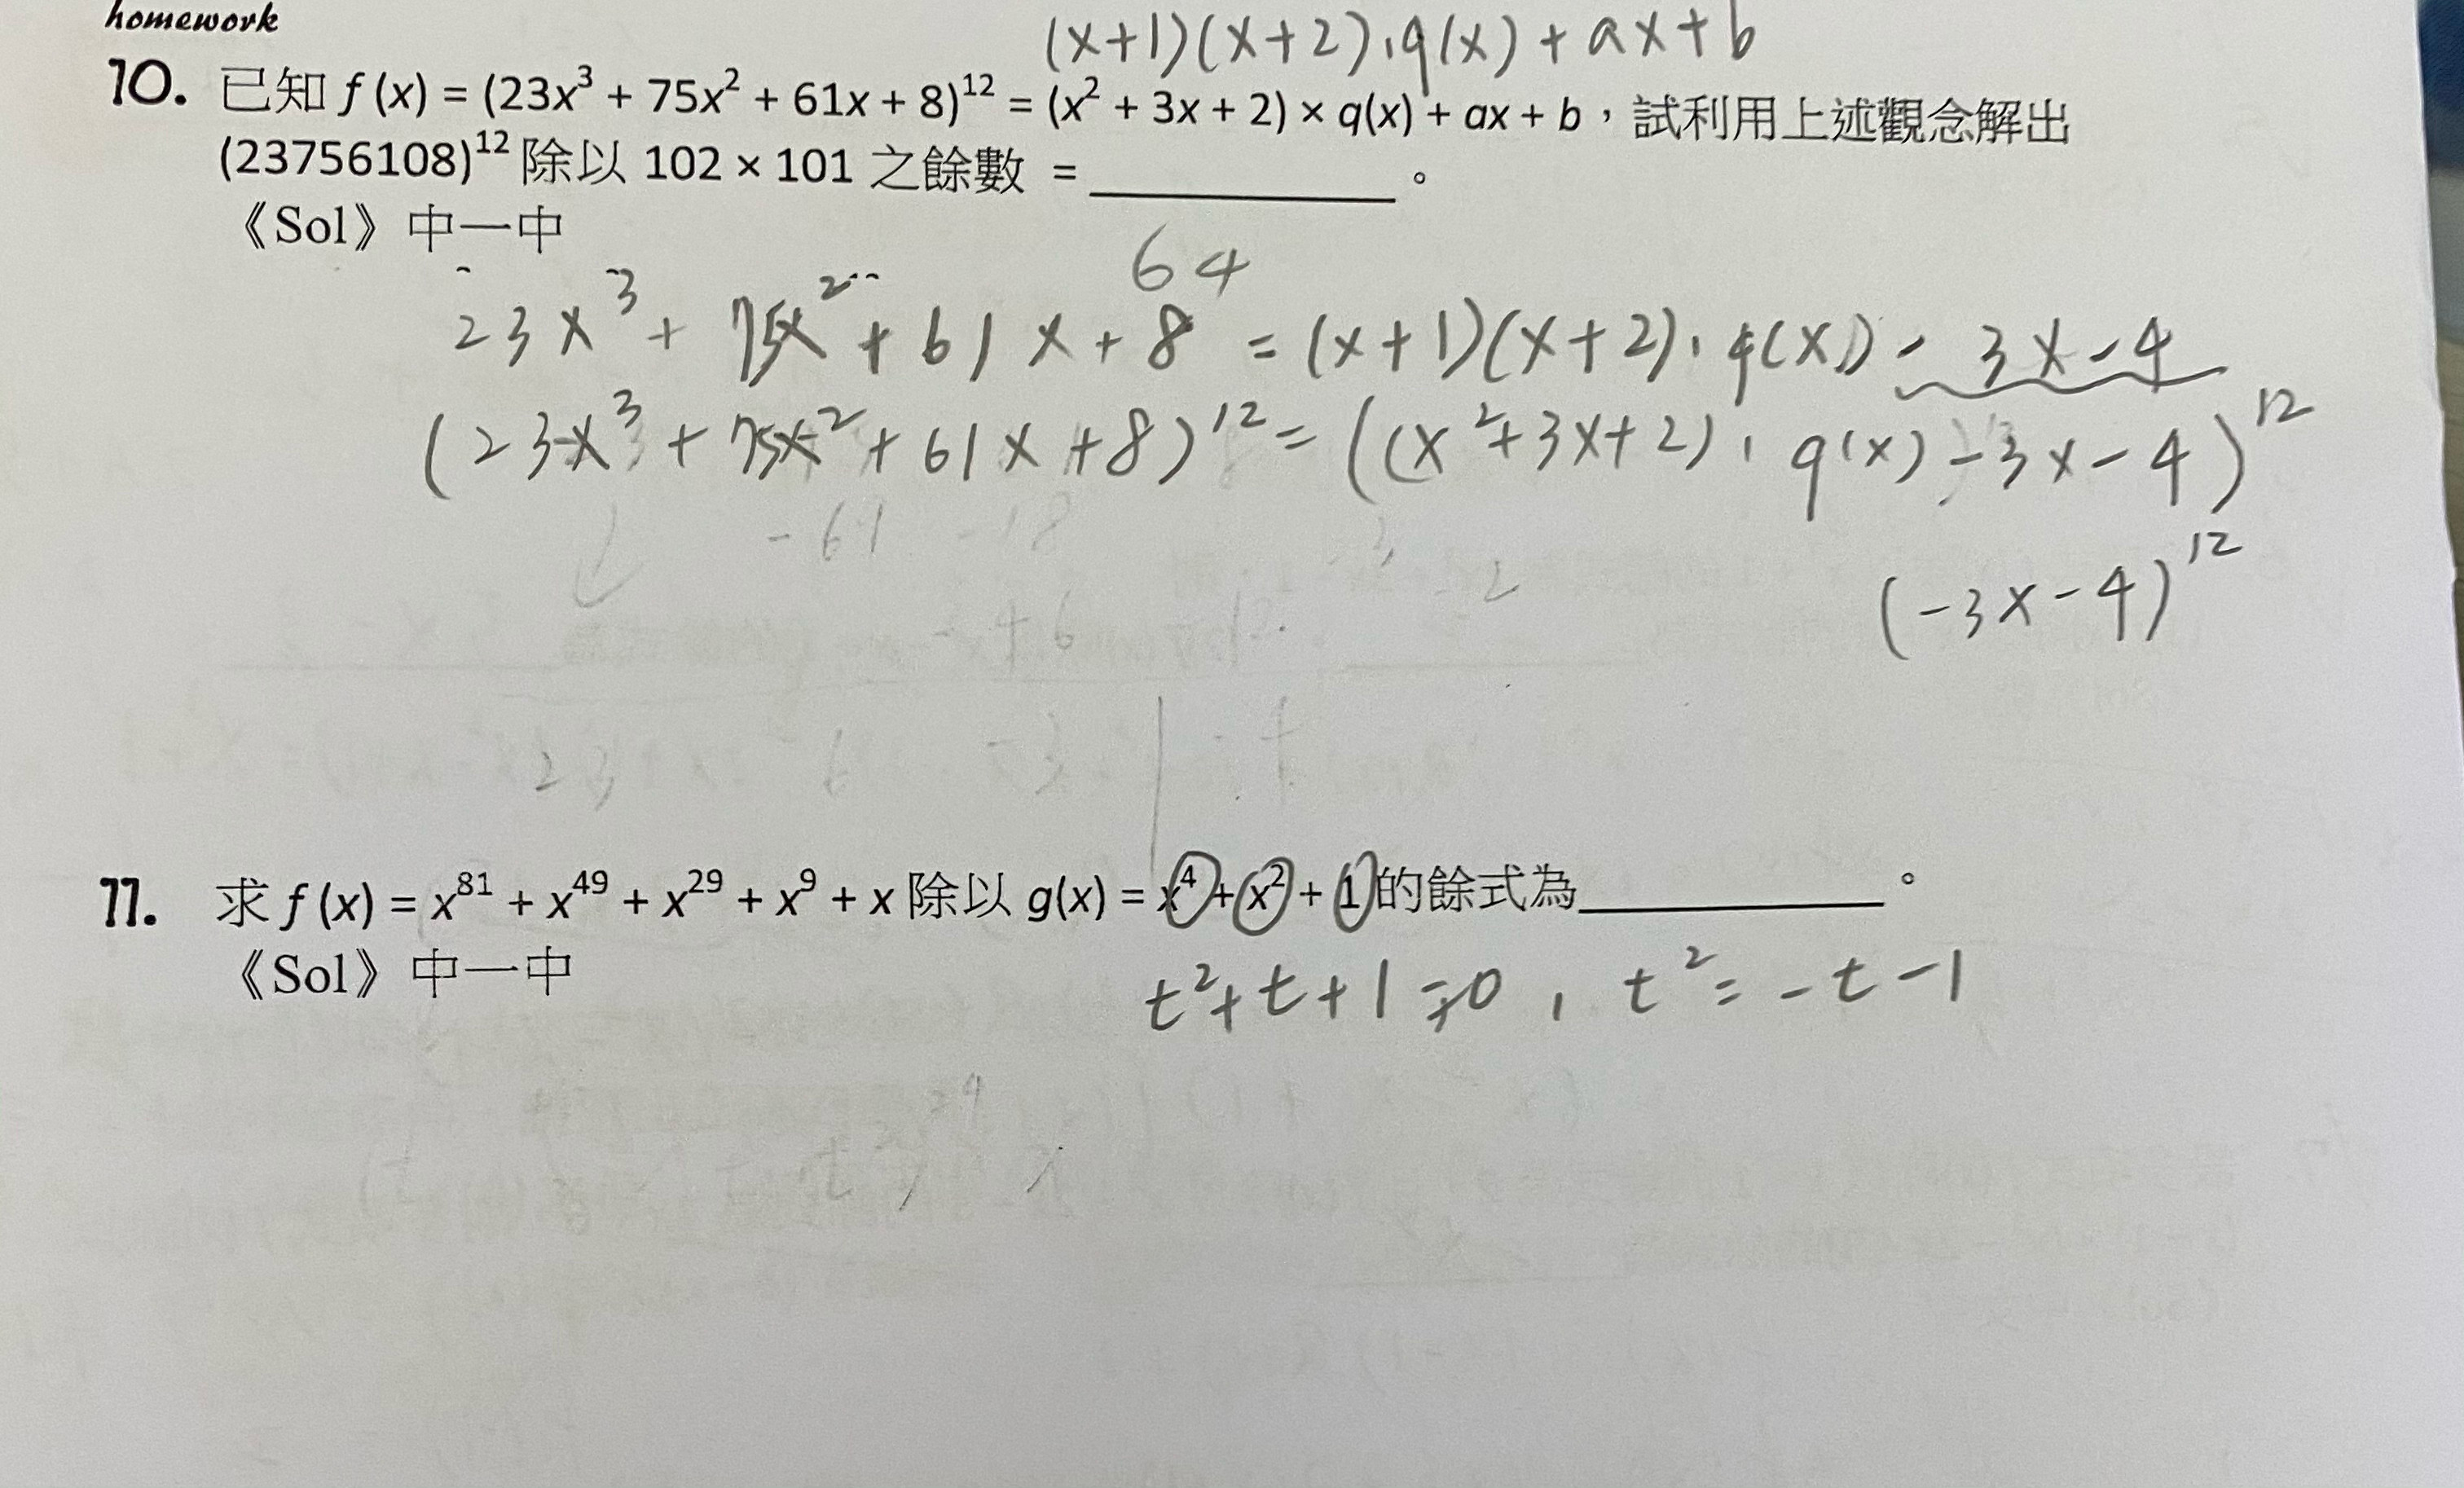 homework
(x+1)(x+2)·q(x)+ax+b
10. 已知 f (x) = (23x³ + 75x² + 61x + 8)¹² = (x² + 3x + 2) × q(x) + ax + b，試利用上述觀念解出
(23756108)¹² 除以 102 × 101 之餘數 = ＿＿＿＿＿＿。
《Sol》中一中
64
23x³ + 75x² + 61x + 8 = (x+1)(x+2)·q(x) - 3x - 4
(23x³ + 75x² + 61x + 8)¹² = ((x²+3x+2)·q(x) - 3x - 4)¹²
-61 -18
(-3x-4)¹²
-46
23 6 -3
11. 求 f (x) = x⁸¹ + x⁴⁹ + x²⁹ + x⁹ + x 除以 g(x) = x⁴ + x² + 1 的餘式為＿＿＿＿＿＿。
《Sol》中一中
t²+t+1=0, t²=-t-1